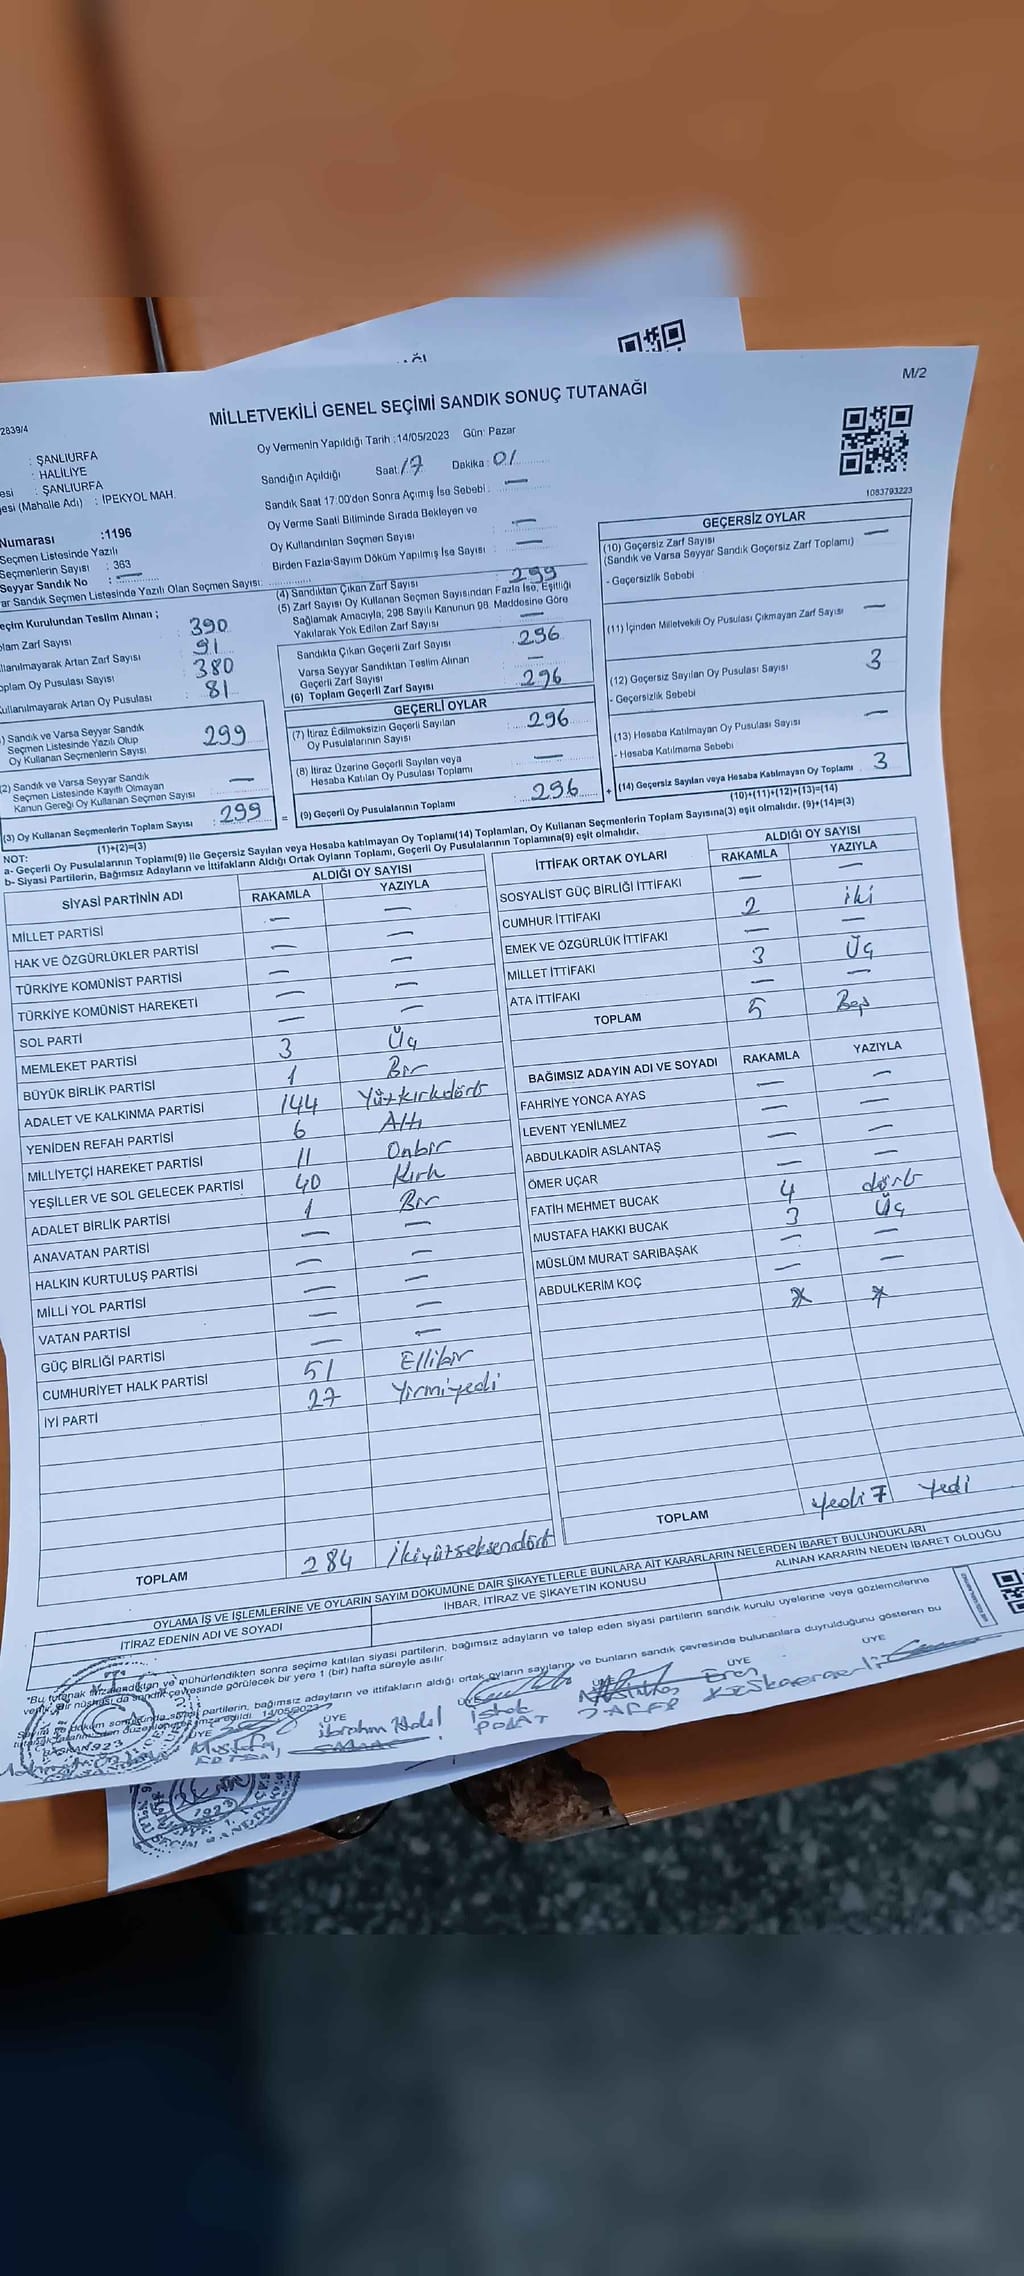 AĞI
M/2
2839/4
MİLLETVEKİLİ GENEL SEÇİMİ SANDIK SONUÇ TUTANAĞI
: ŞANLIURFA
: HALİLİYE
esi : ŞANLIURFA
esi (Mahalle Adı) : İPEKYOL MAH.
Numarası :1196
Seçmen Listesinde Yazılı
Seçmenlerin Sayısı : 363
Seyyar Sandık No : —
ar Sandık Seçmen Listesinde Yazılı Olan Seçmen Sayısı:
Oy Vermenin Yapıldığı Tarih :14/05/2023 Gün: Pazar
Sandığın Açıldığı Saat: 17 Dakika : 01
Sandık Saat 17:00'den Sonra Açımış İse Sebebi : —
Oy Verme Saati Bitiminde Sırada Bekleyen ve
Oy Kullandırılan Seçmen Sayısı : —
Birden Fazla Sayım Döküm Yapılmış İse Sayısı : —
1083793223
eçim Kurulundan Teslim Alınan ;
plam Zarf Sayısı : 390
llanılmayarak Artan Zarf Sayısı : 91
oplam Oy Pusulası Sayısı : 380
Kullanılmayarak Artan Oy Pusulası : 81
) Sandık ve Varsa Seyyar Sandık
Seçmen Listesinde Yazılı Olup
Oy Kullanan Seçmenlerin Sayısı : 299
(2) Sandık ve Varsa Seyyar Sandık
Seçmen Listesinde Kayıtlı Olmayan
Kanun Gereği Oy Kullanan Seçmen Sayısı : —
(3) Oy Kullanan Seçmenlerin Toplam Sayısı : 299
(1)+(2)=(3)
(4) Sandıktan Çıkan Zarf Sayısı : 299
(5) Zarf Sayısı Oy Kullanan Seçmen Sayısından Fazla İse, Eşitliği
Sağlamak Amacıyla; 298 Sayılı Kanunun 98. Maddesine Göre
Yakılarak Yok Edilen Zarf Sayısı : —
Sandıkta Çıkan Geçerli Zarf Sayısı : 296
Varsa Seyyar Sandıktan Teslim Alınan
Geçerli Zarf Sayısı : —
(6) Toplam Geçerli Zarf Sayısı : 296
GEÇERLİ OYLAR
(7) İtiraz Edilmeksizin Geçerli Sayılan
Oy Pusulalarının Sayısı : 296
(8) İtiraz Üzerine Geçerli Sayılan veya
Hesaba Katılan Oy Pusulası Toplamı : —
= (9) Geçerli Oy Pusulalarının Toplamı : 296 +
GEÇERSİZ OYLAR
(10) Geçersiz Zarf Sayısı —
(Sandık ve Varsa Seyyar Sandık Geçersiz Zarf Toplamı)
- Geçersizlik Sebebi
(11) İçinden Milletvekili Oy Pusulası Çıkmayan Zarf Sayısı —
(12) Geçersiz Sayılan Oy Pusulası Sayısı 3
- Geçersizlik Sebebi
(13) Hesaba Katılmayan Oy Pusulası Sayısı —
- Hesaba Katılmama Sebebi
(14) Geçersiz Sayılan veya Hesaba Katılmayan Oy Toplamı 3
(10)+(11)+(12)+(13)=(14)
NOT:
a- Geçerli Oy Pusulalarının Toplamı(9) ile Geçersiz Sayılan veya Hesaba katılmayan Oy Toplamı(14) Toplamları, Oy Kullanan Seçmenlerin Toplam Sayısına(3) eşit olmalıdır. (9)+(14)=(3)
b- Siyasi Partilerin, Bağımsız Adayların ve İttifakların Aldığı Ortak Oyların Toplamı, Geçerli Oy Pusulalarının Toplamına(9) eşit olmalıdır.
SİYASİ PARTİNİN ADI ALDIĞI OY SAYISI
RAKAMLA YAZIYLA
MİLLET PARTİSİ — —
HAK VE ÖZGÜRLÜKLER PARTİSİ — —
TÜRKİYE KOMÜNİST PARTİSİ — —
TÜRKİYE KOMÜNİST HAREKETİ — —
SOL PARTİ — —
MEMLEKET PARTİSİ 3 Üç
BÜYÜK BİRLİK PARTİSİ 1 Bir
ADALET VE KALKINMA PARTİSİ 144 Yüzkırkdört
YENİDEN REFAH PARTİSİ 6 Altı
MİLLİYETÇİ HAREKET PARTİSİ 11 Onbir
YEŞİLLER VE SOL GELECEK PARTİSİ 40 Kırk
ADALET BİRLİK PARTİSİ 1 Bir
ANAVATAN PARTİSİ — —
HALKIN KURTULUŞ PARTİSİ — —
MİLLİ YOL PARTİSİ — —
VATAN PARTİSİ — —
GÜÇ BİRLİĞİ PARTİSİ — —
CUMHURİYET HALK PARTİSİ 51 Ellibir
İYİ PARTİ 27 Yirmiyedi
TOPLAM 284 İkiyüzseksendört
İTTİFAK ORTAK OYLARI ALDIĞI OY SAYISI
RAKAMLA YAZIYLA
SOSYALİST GÜÇ BİRLİĞİ İTTİFAKI — —
CUMHUR İTTİFAKI 2 iki
EMEK VE ÖZGÜRLÜK İTTİFAKI — —
MİLLET İTTİFAKI 3 Üç
ATA İTTİFAKI — —
TOPLAM 5 Beş
BAĞIMSIZ ADAYIN ADI VE SOYADI RAKAMLA YAZIYLA
FAHRİYE YONCA AYAS — —
LEVENT YENİLMEZ — —
ABDULKADİR ASLANTAŞ — —
ÖMER UÇAR — —
FATİH MEHMET BUCAK 4 dört
MUSTAFA HAKKI BUCAK 3 Üç
MÜSLÜM MURAT SARIBAŞAK — —
ABDULKERİM KOÇ — —
TOPLAM yedi 7 Yedi
OYLAMA İŞ VE İŞLEMLERİNE VE OYLARIN SAYIM DÖKÜMÜNE DAİR ŞİKAYETLERLE BUNLARA AİT KARARLARIN NELERDEN İBARET BULUNDUKLARI
İTİRAZ EDENİN ADI VE SOYADI İHBAR, İTİRAZ VE ŞİKAYETİN KONUSU ALINAN KARARIN NEDEN İBARET OLDUĞU
*Bu tutanak imzalandıktan ve mühürlendikten sonra seçime katılan siyasi partilerin, bağımsız adayların ve talep eden siyasi partilerin sandık kurulu üyelerine veya gözlemcilerine
verilir, bir nüshası da sandık çevresinde görülecek bir yere 1 (bir) hafta süreyle asılır.
siyasi partilerin, bağımsız adayların ve ittifakların aldığı ortak oyların sayılarını ve bunların sandık çevresinde bulunanlara duyrulduğunu gösteren bu
14/05/2023
BAŞKAN ÜYE ÜYE ÜYE ÜYE ÜYE ÜYE
Mustafa İbrahim Halil İshak POLAT Eren
1923